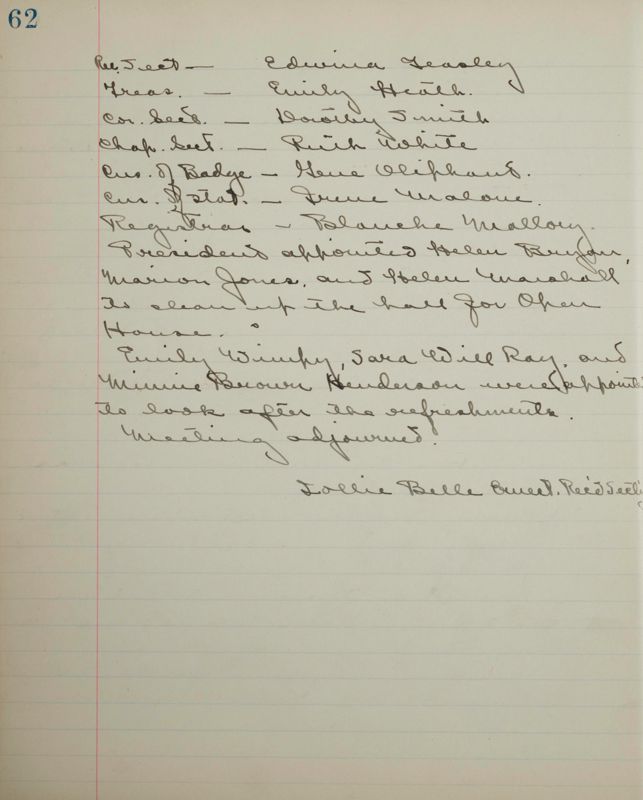 62
Rec. Sect — Edwina Teasley
Treas. — Emily Heath.
Cor. Sect. — Dorothy Smith
Chap. Sect. — Ruth White
Cus. of Badge — Gene Oliphant.
Cus. of stat. — Irene Malone.
Registrar — Blanche Mallory.
President appointed Helen Bryan,
Marion Jones, and Helen Marshall
to clean up the hall for Open
House.
Emily Wimpy, Sara Will Ray, and
Minnie Brown Henderson were appointed
to look after the refreshments.
Meeting adjourned.
Lollie Belle Rec'd Sect'y